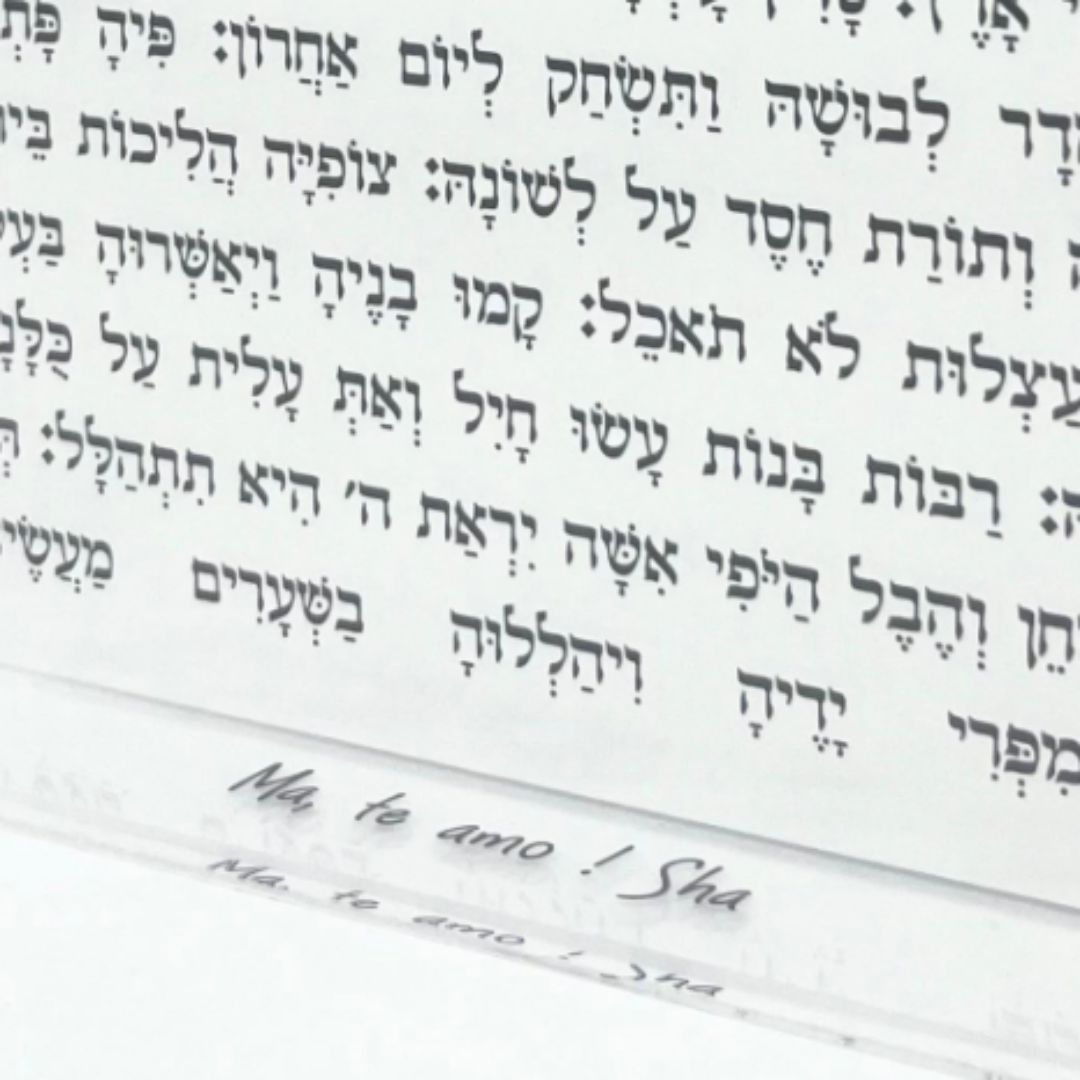 לְבוּשָׁהּ וַתִּשְׂחַק לְיוֹם אַחֲרוֹן: פִּיהָ
וְתוֹרַת חֶסֶד עַל לְשׁוֹנָהּ: צוֹפִיָּה הֲלִיכוֹת
וְעַצְלוּת לֹא תֹאכֵל: קָמוּ בָנֶיהָ וַיְאַשְּׁרוּהָ
רַבּוֹת בָּנוֹת עָשׂוּ חָיִל וְאַתְּ עָלִית עַל
וְהֶבֶל הַיֹּפִי אִשָּׁה יִרְאַת ה' הִיא תִתְהַלָּל:
מִפְּרִי יָדֶיהָ וִיהַלְלוּהָ בַשְּׁעָרִים
Ma, te amo ! Sha